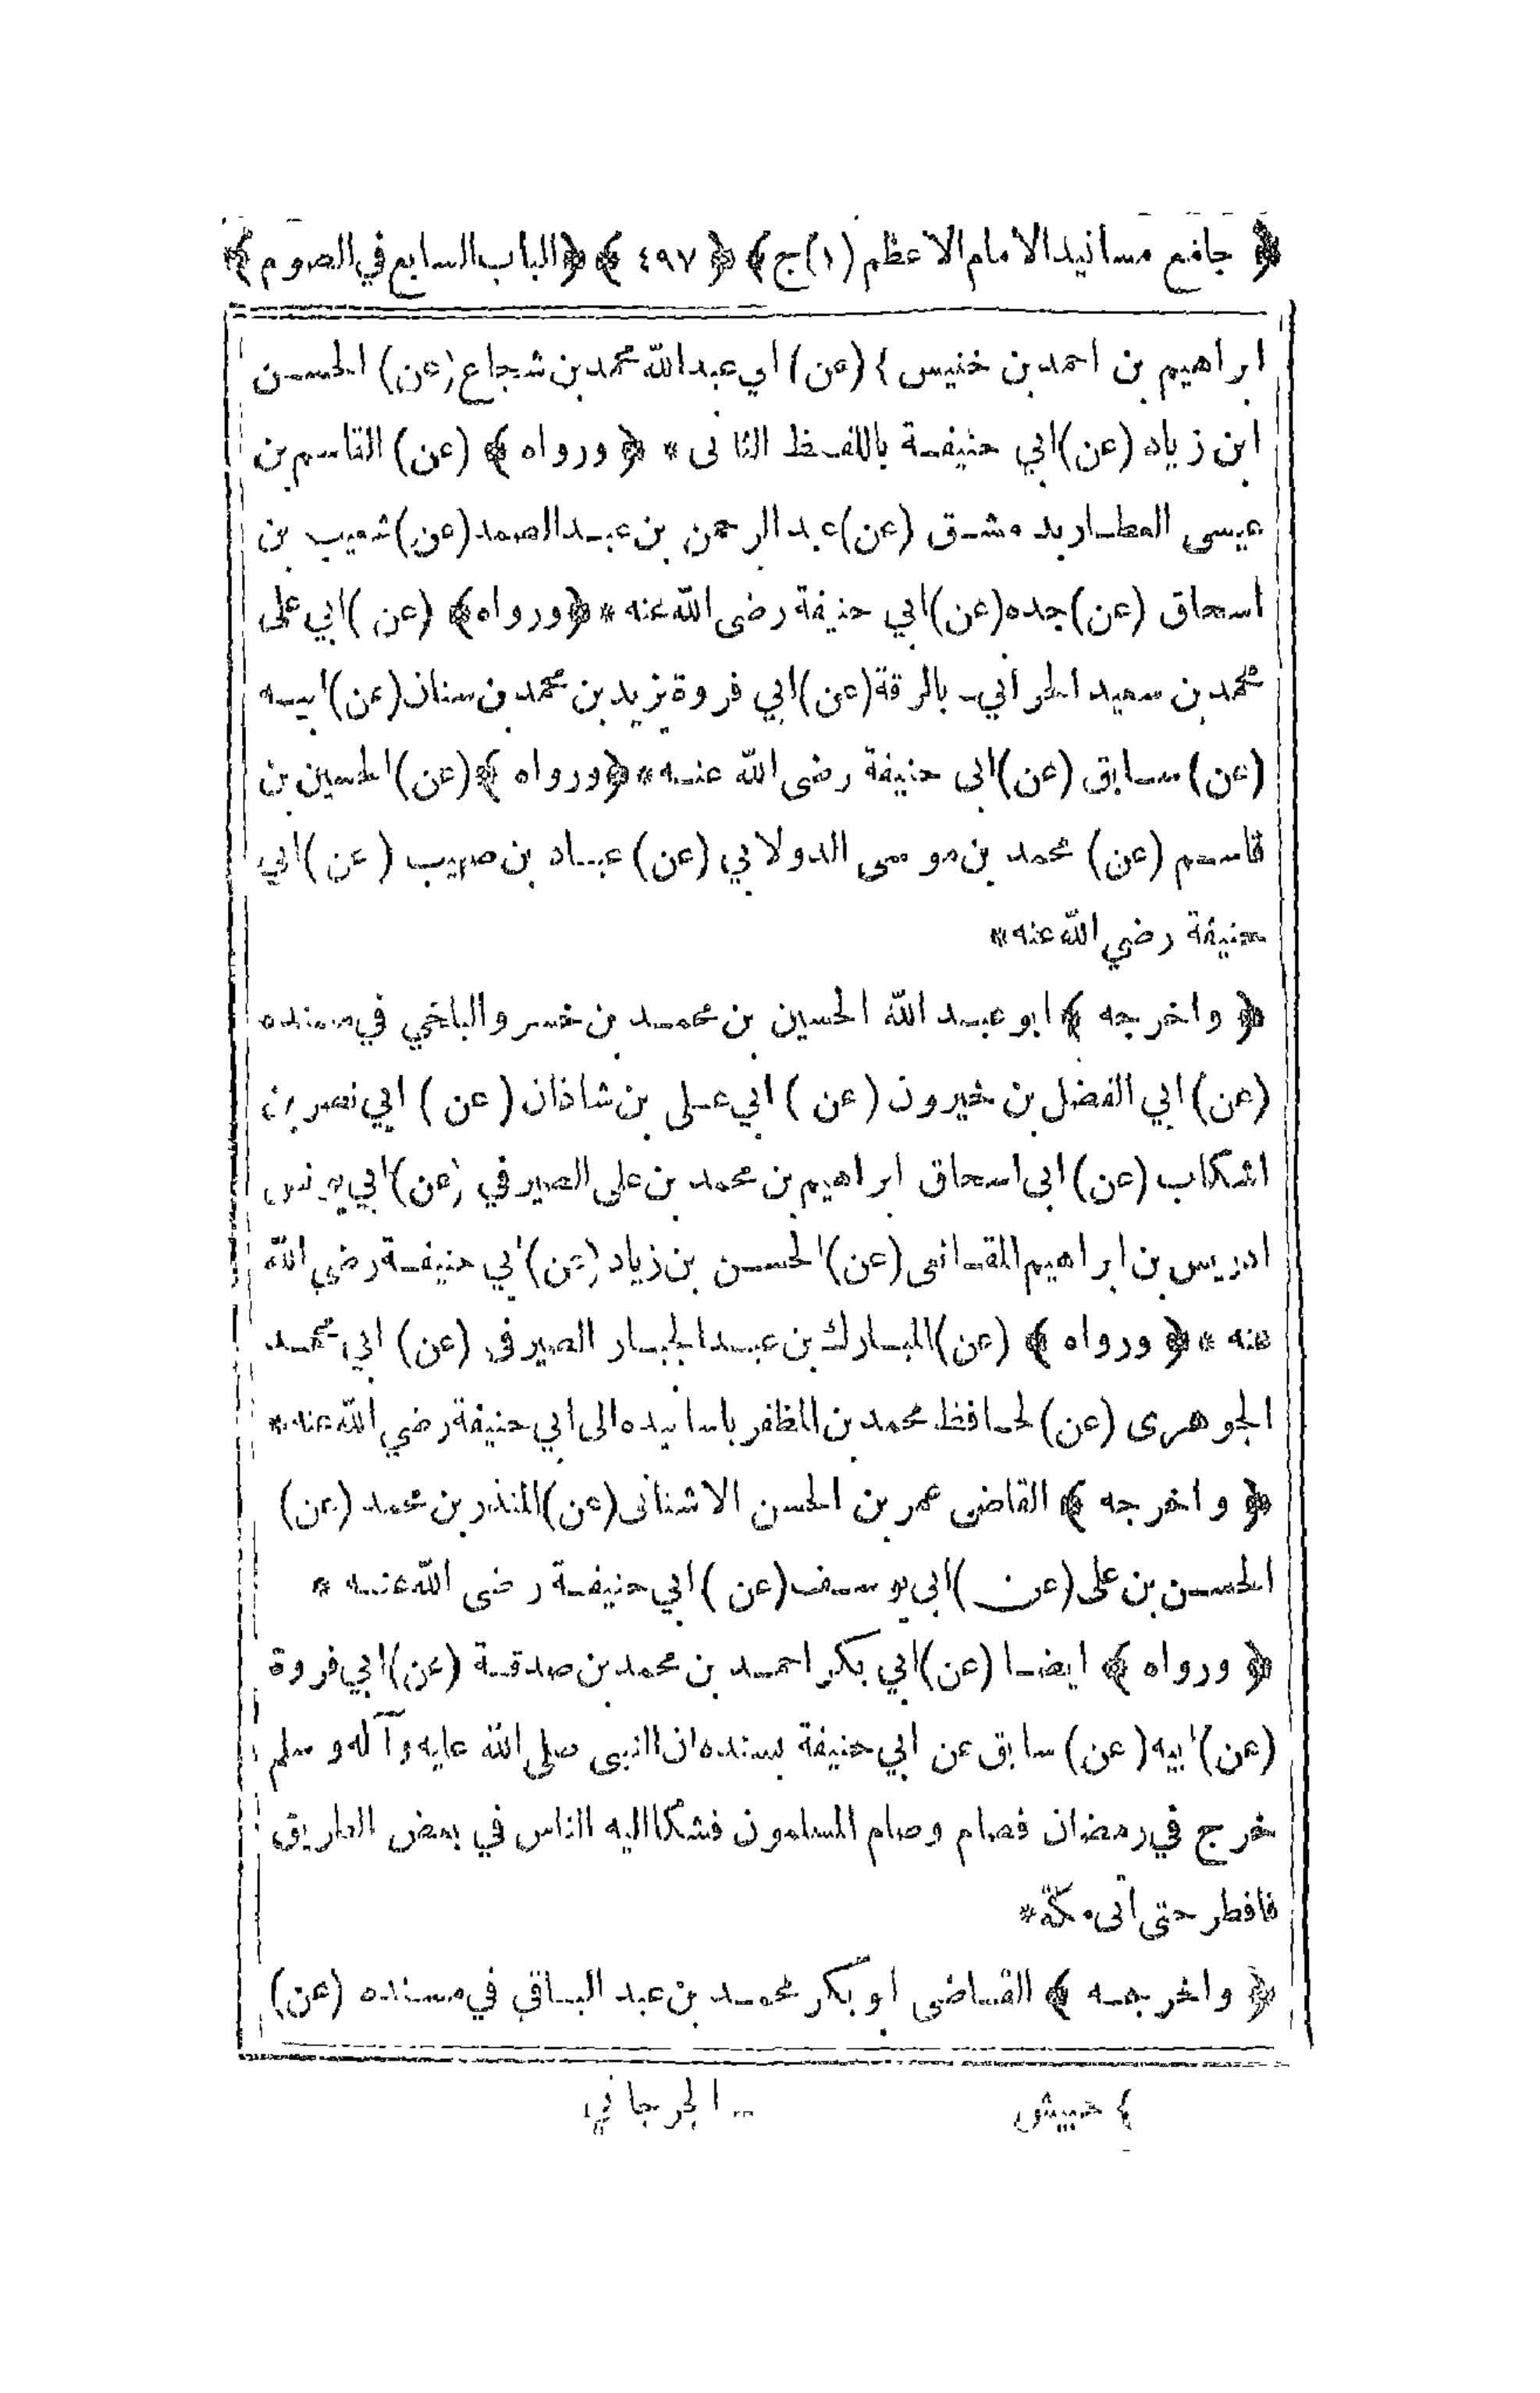 ﴿ جامع مسانيد الامام الاعظم (١) ج ﴾ ﴿ ٤٩٧ ﴾ ﴿ الباب السابع في الصوم ﴾
ابراهيم بن احمد بن خنيس } (عن) ابي عبد الله محمد بن شجاع (عن) الحسن
ابن زياد (عن) ابي حنيفة باللفظ الثانى * ﴿ ورواه ﴾ (عن) القاسم بن
عيسى العطار بد مشق (عن) عبد الرحمن بن عبد الصمد (عن) شعيب بن
اسحاق (عن) جده (عن) ابي حنيفة رضى الله عنه * ﴿ ورواه ﴾ (عن) ابي على
محمد بن سعيد الحراني ـ بالرقة (عن) ابي فروة يزيد بن محمد بن سنان (عن) ابيه
(عن) سابق (عن) ابى حنيفة رضى الله عنه * ﴿ ورواه ﴾ (عن) الحسين بن
قاسم (عن) محمد بن موسى الدولابي (عن) عباد بن صهيب (عن) ابي
حنيفة رضي الله عنه *
﴿ واخرجه ﴾ ابو عبد الله الحسين بن محمد بن خسرو البلخي في مسنده
(عن) ابي الفضل بن خيرون (عن) ابي على بن شاذان (عن) ابي نصر بن
اشكاب (عن) ابى اسحاق ابراهيم بن محمد بن على الصيرفي (عن) ابي يونس
ادريس بن ابراهيم المقانعى (عن) الحسن بن زياد (عن) ابي حنيفة رضي الله
عنه * ﴿ ورواه ﴾ (عن) المبارك بن عبد الجبار الصيرفى (عن) ابي محمد
الجوهرى (عن) لحافظ محمد بن المظفر باسانيده الى ابي حنيفة رضي الله عنه *
﴿ واخرجه ﴾ القاضى عمر بن الحسن الاشنانى (عن) المنذر بن محمد (عن)
الحسن بن على (عن) ابى يوسف (عن) ابي حنيفة رضى الله عنه *
﴿ ورواه ﴾ ايضا (عن) ابي بكر احمد بن محمد بن صدقة (عن) ابي فروة
(عن) ابيه (عن) سابق عن ابي حنيفة بسنده ان النبى صلى الله عليه وآله وسلم
خرج في رمضان فصام وصام المسلمون فشكا اليه الناس في بعض الطريق
فافطر حتى اتى مكة *
﴿ واخرجه ﴾ القاضى ابو بكر محمد بن عبد الباقي في مسنده (عن)
} حبيش ـ الجرجاني